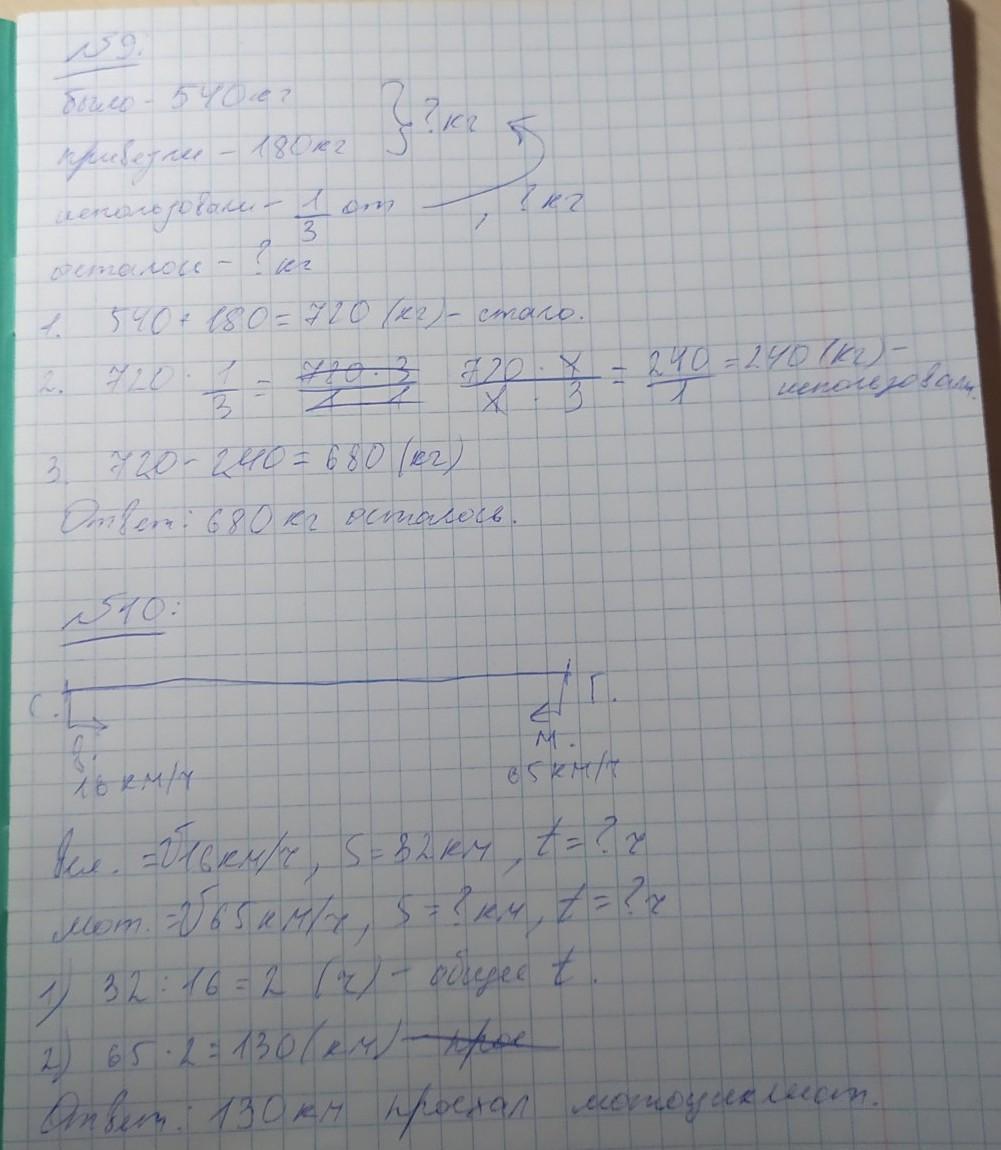 №9.
было - 540 кг } ? кг
привезли - 180 кг
использовали - 1/3 от , ? кг
осталось - ? кг
1. 540 + 180 = 720 (кг) - стало.
2. 720 · 1/3 = 720 · 3 / 1 · 1 720 · 1 / 1 · 3 = 240/1 = 240 (кг) -
использовали.
3. 720 - 240 = 680 (кг)
Ответ: 680 кг осталось.
№10:
С. Г.
В. М.
16 км/ч 65 км/ч
Вел. = v 16 км/ч, S = 32 км, t = ? ч
Мот. = v 65 км/ч, S = ? км, t = ? ч
1) 32 : 16 = 2 (ч) - общее t.
2) 65 · 2 = 130 (км) - прое
Ответ: 130 км проехал мотоциклист.